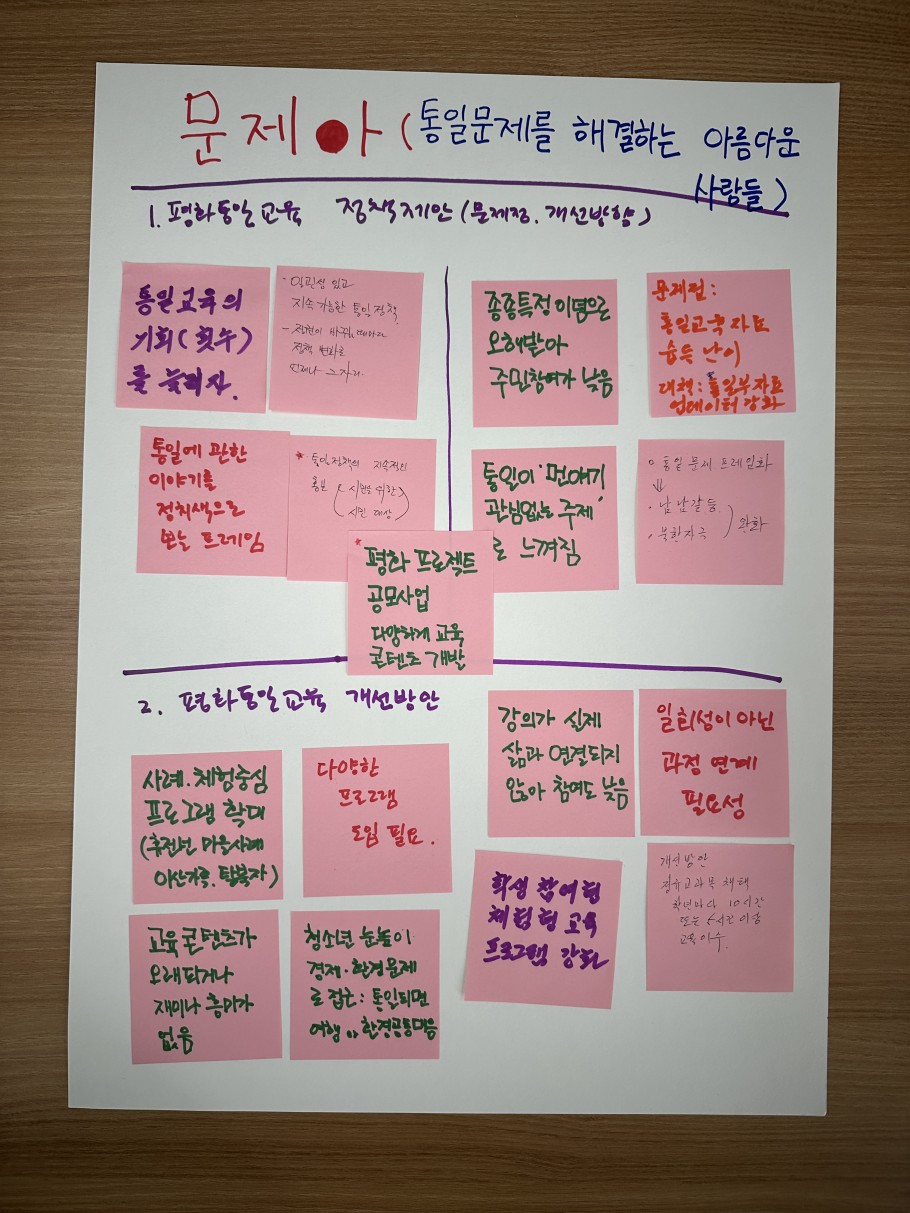 문제아 (통일문제를 해결하는 아름다운
사람들)
1. 평화통일교육 정책제안 (문제점, 개선방향)
통일교육의
기회(횟수)
를 늘리자.
- 일관성 있고
지속 가능한 통일정책.
- 정권이 바뀔때마다
정책 변화로
언제나 그자리.
통일에 관한
이야기를
정치색으로
보는 프레임
* 통일정책의 지속적인
홍보 (시민을 위한)
(시민 대상)
* 평화 프로젝트
공모사업
다양하게 교육
콘텐츠 개발
종종특정이념으로
오해받아
주민참여가 낮음
문제점:
통일교육자료
습득 난이
대책: 통일부자료
업데이터 강화
통일이 '먼얘기'
관심없는 주제
로 느껴짐
◦ 통일 문제 프레임화
⇓
· 남남갈등
· 북한자극 ) 완화
2. 평화통일교육 개선방안
사례·체험중심
프로그램 확대
(휴전선 마을사례
이산가족, 탈북자)
다양한
프로그램
도입 필요.
교육콘텐츠가
오래되거나
재미나 흥미가
없음
청소년 눈높이
경제·환경문제
로 접근: 통일되면
여행 ,, 환경공동대응
강의가 실제
삶과 연결되지
않아 참여도 낮음
일회성이 아닌
과정 연계
필요성
학생 참여형
체험형 교육
프로그램 강화
개선방안
정규교과목 채택
학년마다 10시간
또는 5시간 이상
교육이수.